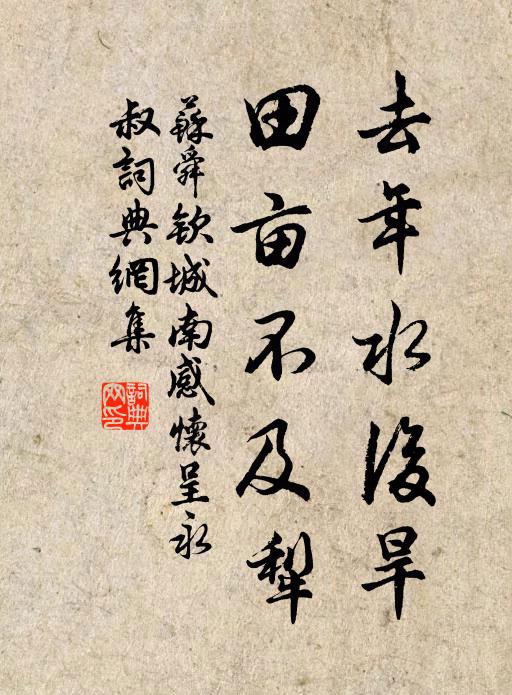 去年水後旱
田亩不及犁
蘇舜欽城南感懷呈永
叔詞典網集
詞典网印